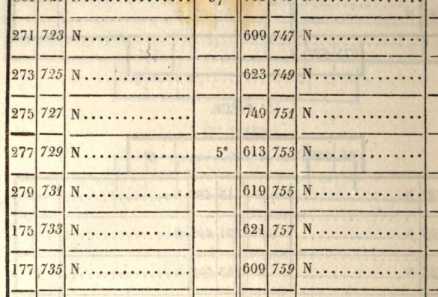 271 723 N............... 699 747 N...............
273 725 N............... 623 749 N...............
275 727 N............... 749 751 N...............
277 729 N............... 5* 613 753 N...............
279 731 N............... 619 755 N...............
175 733 N............... 621 757 N...............
177 735 N............... 609 759 N...............